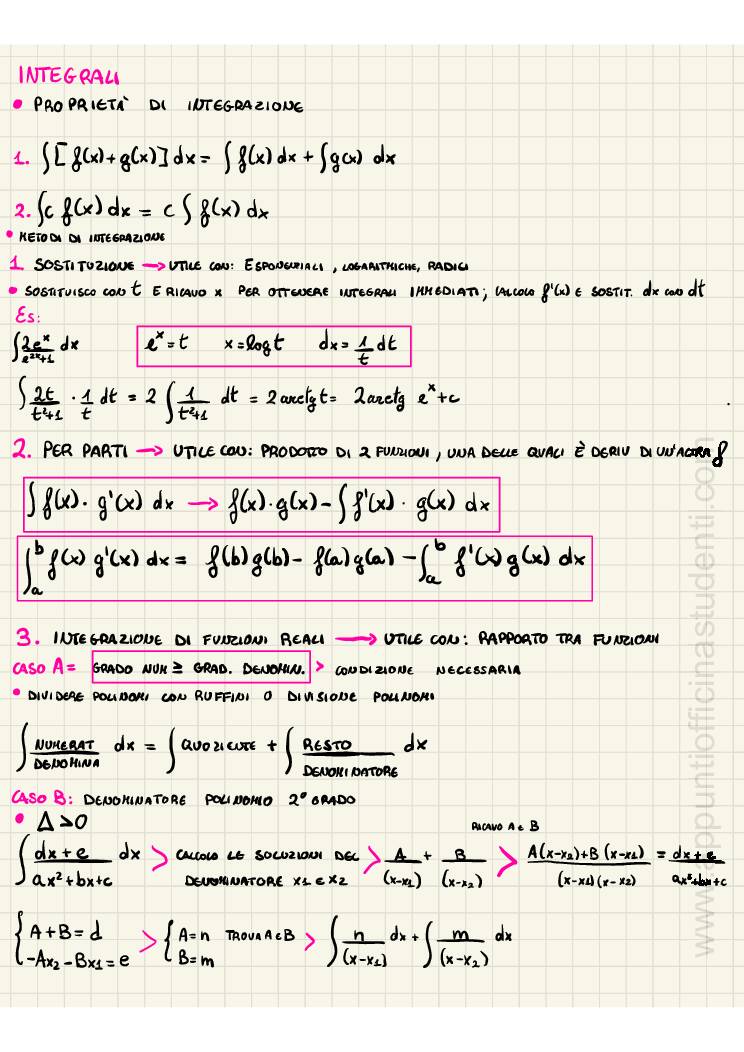 INTEGRALI
• PROPRIETA' DI INTEGRAZIONE
1. ∫[f(x)+g(x)]dx = ∫f(x) dx + ∫g(x) dx
2. ∫c f(x) dx = c ∫ f(x) dx
• METODI DI INTEGRAZIONE
1 SOSTITUZIONE → UTILE CON: ESPONENZIALI, LOGARITMICHE, RADICI
• SOSTITUISCO CON t E RICAVO x PER OTTENERE INTEGRALI IMMEDIATI; CALCOLO f'(x) E SOSTIT. dx con dt
Es:
∫ 2e^x/e^2x+1 dx e^x = t x = log t dx = 1/t dt
∫ 2t/t²+1 · 1/t dt = 2 ∫ 1/t²+1 dt = 2 arctg t = 2 arctg e^x + c
2. PER PARTI → UTILE CON: PRODOTTO DI 2 FUNZIONI, UNA DELLE QUALI È DERIV DI UN'ALTRA f
∫ f(x) · g'(x) dx → f(x)·g(x) - ∫ f'(x) · g(x) dx
∫_a^b f(x) g'(x) dx = f(b)g(b) - f(a)g(a) - ∫_a^b f'(x) g(x) dx
3. INTEGRAZIONE DI FUNZIONI REALI → UTILE CON: RAPPORTO TRA FUNZIONI
CASO A = GRADO NUM ≥ GRAD. DENOMIN. > CONDIZIONE NECESSARIA
• DIVIDERE POLINOMI CON RUFFINI O DIVISIONE POLINOMI
∫ NUMERAT/DENOMINA dx = ∫ QUOZIENTE + ∫ RESTO/DENOMINATORE dx
CASO B: DENOMINATORE POLINOMIO 2° GRADO
• Δ>0
RICAVO A e B
∫ dx+e/ax²+bx+c dx > CALCOLO LE SOLUZIONI DEL DENOMINATORE x1 E x2 > A/(x-x1) + B/(x-x2) > A(x-x2)+B(x-x1)/(x-x1)(x-x2) = dx+e/ax²+bx+c
{A+B=d -Ax2-Bx1=e > {A=n B=m TROVA A E B > ∫ n/(x-x1) dx + ∫ m/(x-x2) dx
www.appuntiofficinastudenti.com